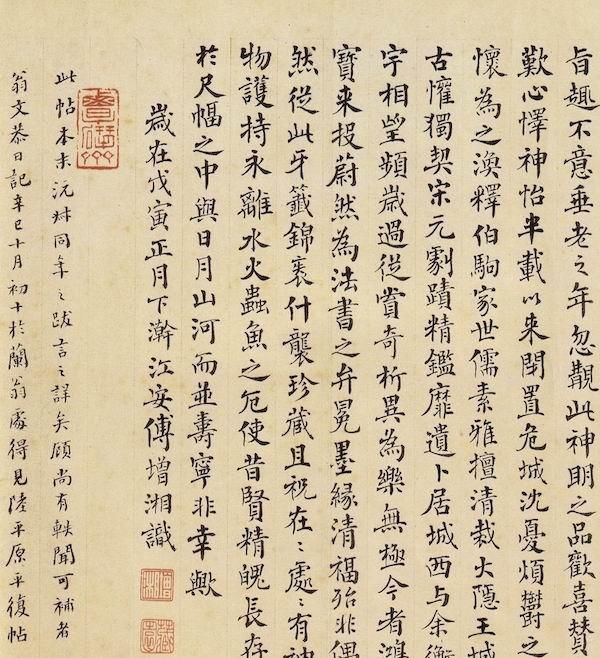 旨趣不意垂老之年忽覩此神明之品歡喜贊
歎心怿神怡半載以來閉置危城沈憂煩欝之
懷為之渙釋伯駒家世儒素雅擅清裁大隱王城
古懽獨契宋元劇蹟精鑑靡遺卜居城西与余衡
宇相望頻歲過從賞奇析異為樂無極今者鴻
寶來投蔚然為法書之弁冕墨緣清福殆非偶
然從此牙籤錦裹什襲珍藏且祝在:處:有神
物護持永離水火蟲魚之厄使昔賢精魄長存
於尺幅之中與日月山河而並壽寧非幸歟
歲在戊寅正月下澣江安傅增湘識
此帖本末沅叔同年之跋言之詳矣顧尚有軼聞可補者
翁文恭日記辛巳十月初十於蘭翁處得見陸平原平復帖